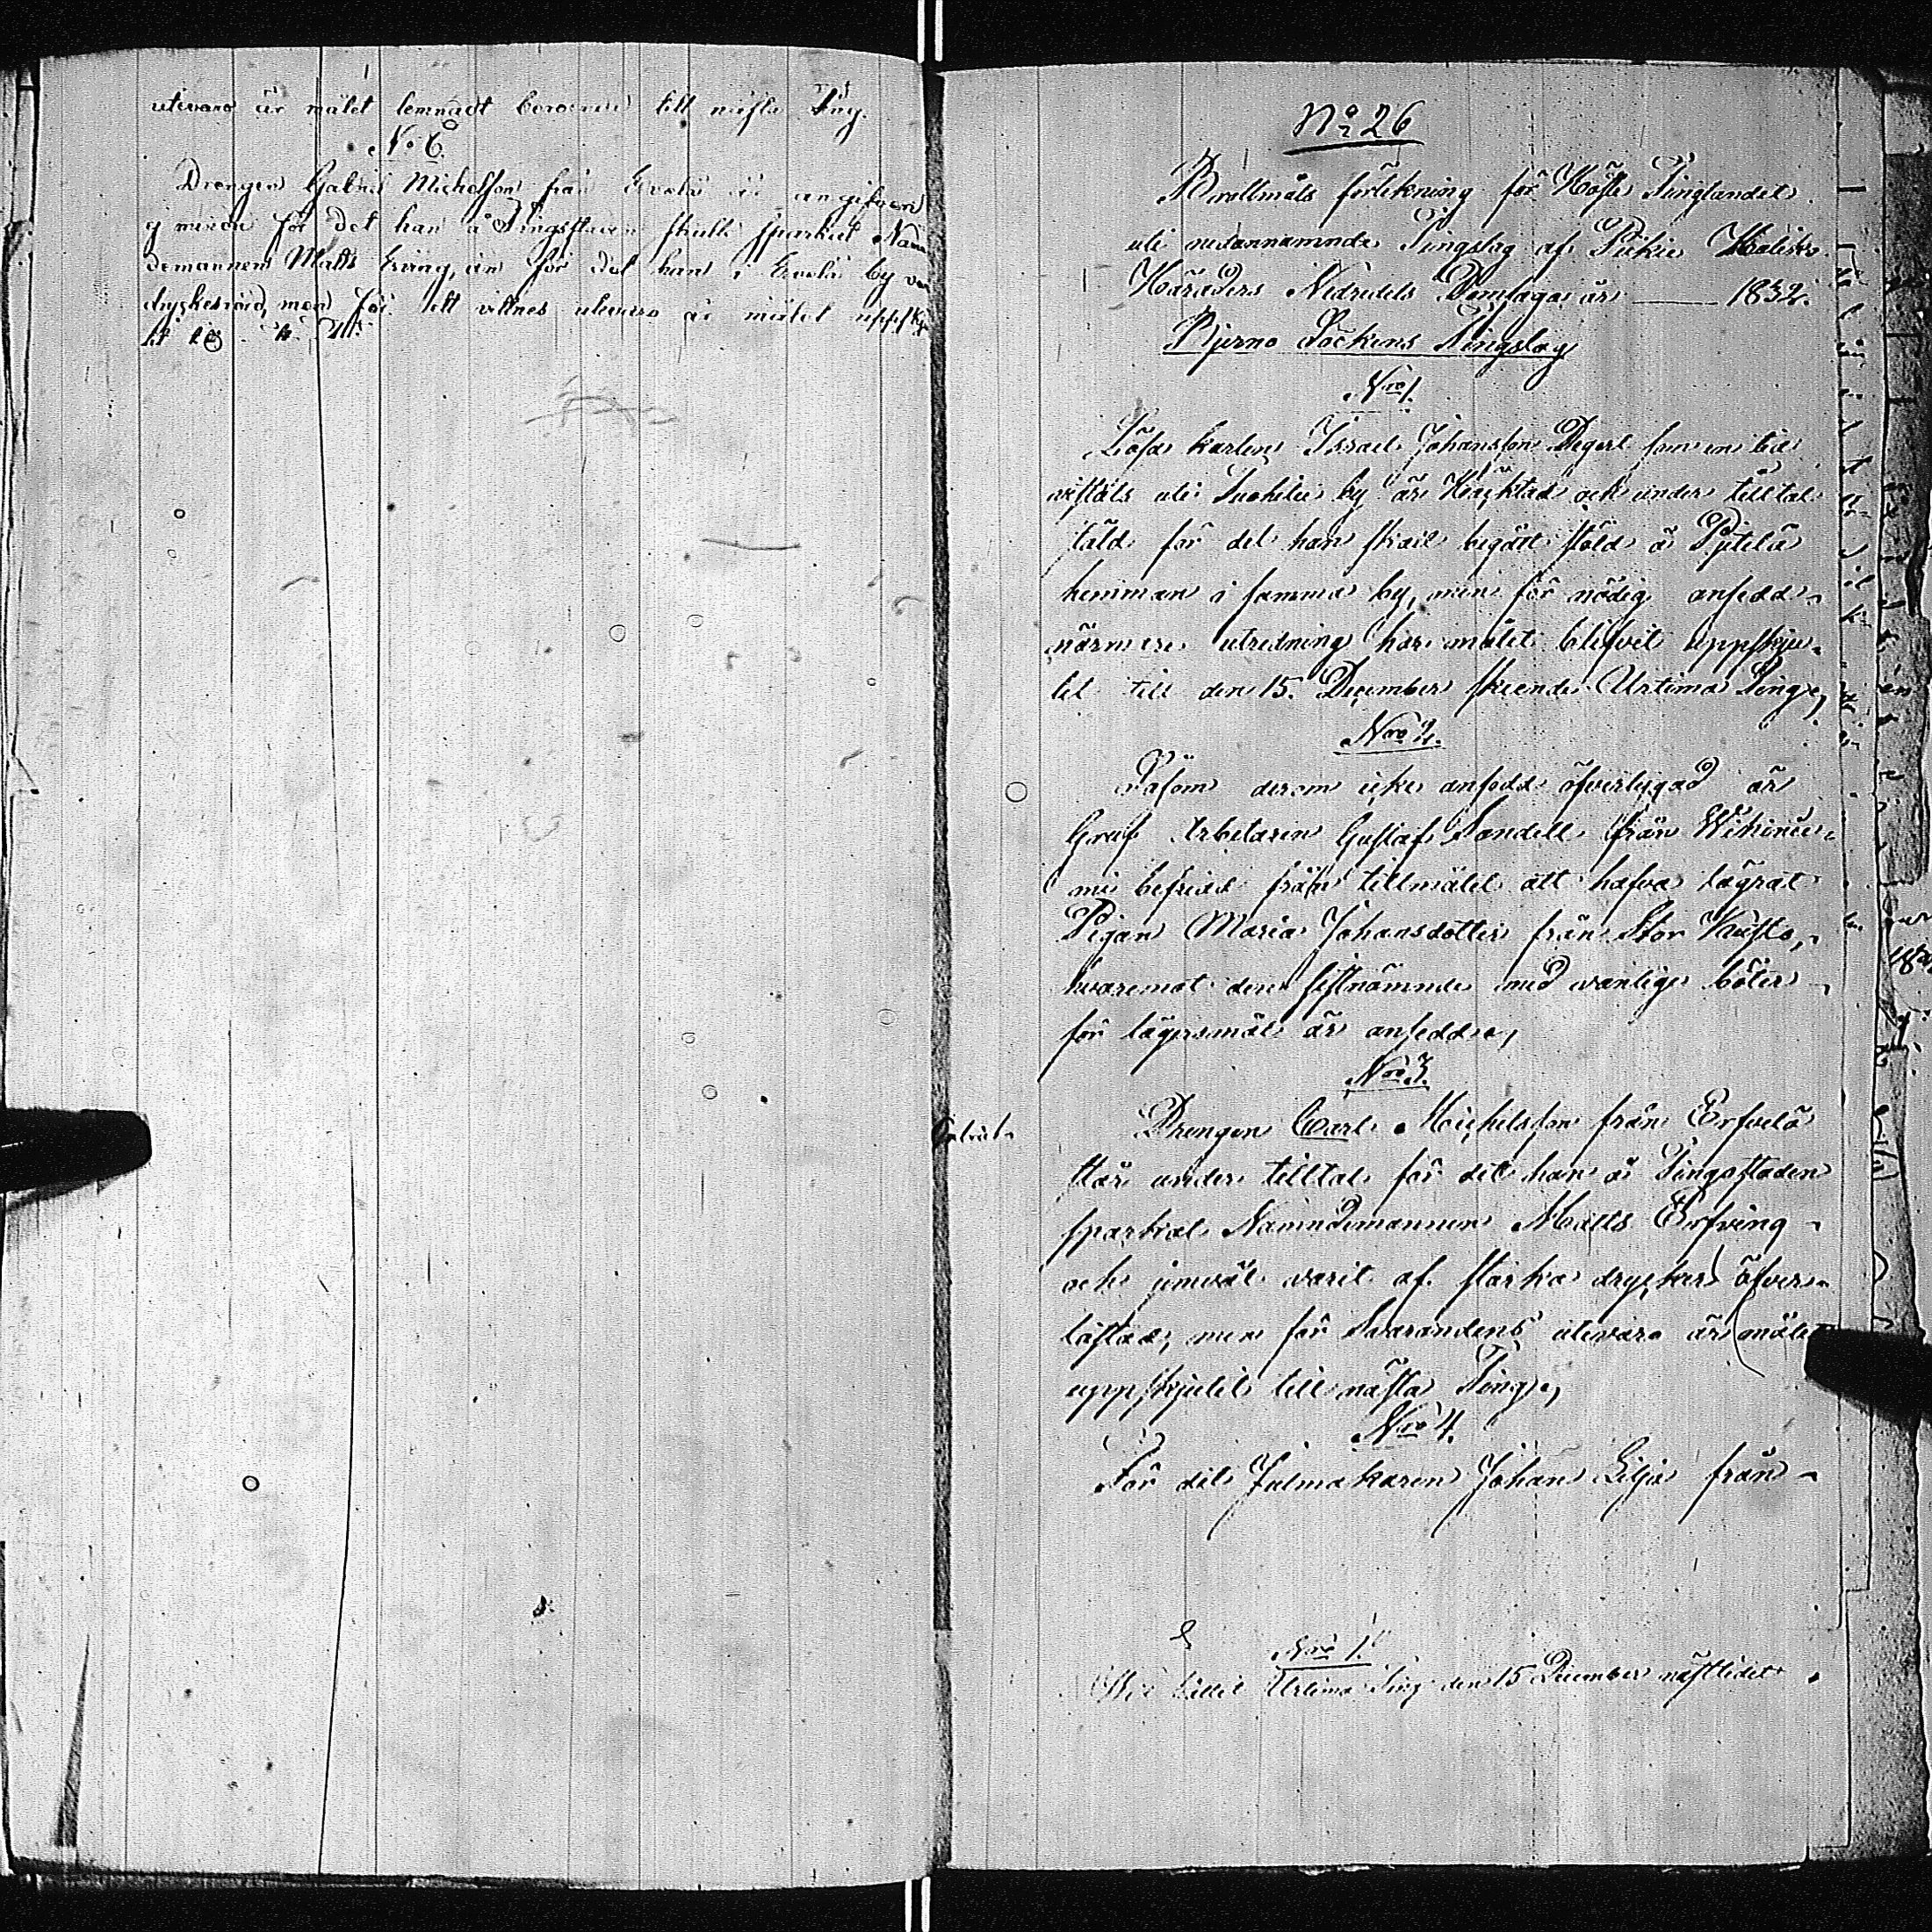 utevaro är målet lemnadt beroende till nästa Ting.
No 6.
Drengen Gabriel Michelsson från Ervelä är angifven
för det han å Tingsstaden skulle sparkat Nämn
demannen Matts Erving, än för det han i Ervelä by
men för ett vittnes utevaro är målet uppskju
No 26
Brottmåls förtekning för Höste Tinglandet
uti nedannämnde Tingslag af Pikie Halikko
Häraders Nedredels Domsaga år 1832.
Bjerno Sockens Tingslag
Nro 1.
Lösa karlen Israel Johansson Degert som en tid
vistats uti by är Häcktad och under tilltal
stäld för det han skall begått stöld å Pytelä
hemman i samma by, men för nödig ansedd
närmere utredning har målet blifvit uppskju-
tit till den 15. December skeende Urtima Ting,
Nro 2.
Såsom derom icke ansedd öfvertygad är
Gruf Arbetaren Gustaf Sandell från
mi befriad från tillmälet att hafva lägrat
Pigan Maria Johansdotter från Stor
hvaremot den sistnämnde med vanlige böter
för lägersmål är ansedd,
Nro 3.
Drengen Carl Michelsson från Erfvelä
står under tilltal för det han å Tingsstaden
sparkat Nämndemannen Matts Erfving
och jemväl varit af starka drycker öfver-
lastad, men för Svarandens utevaro är målet
uppskjutit till nästa Ting,
Nro 4.
För det Julmakaren Johan Lilja från
Nro 1.
Urtima Ting den 15 December nästledit